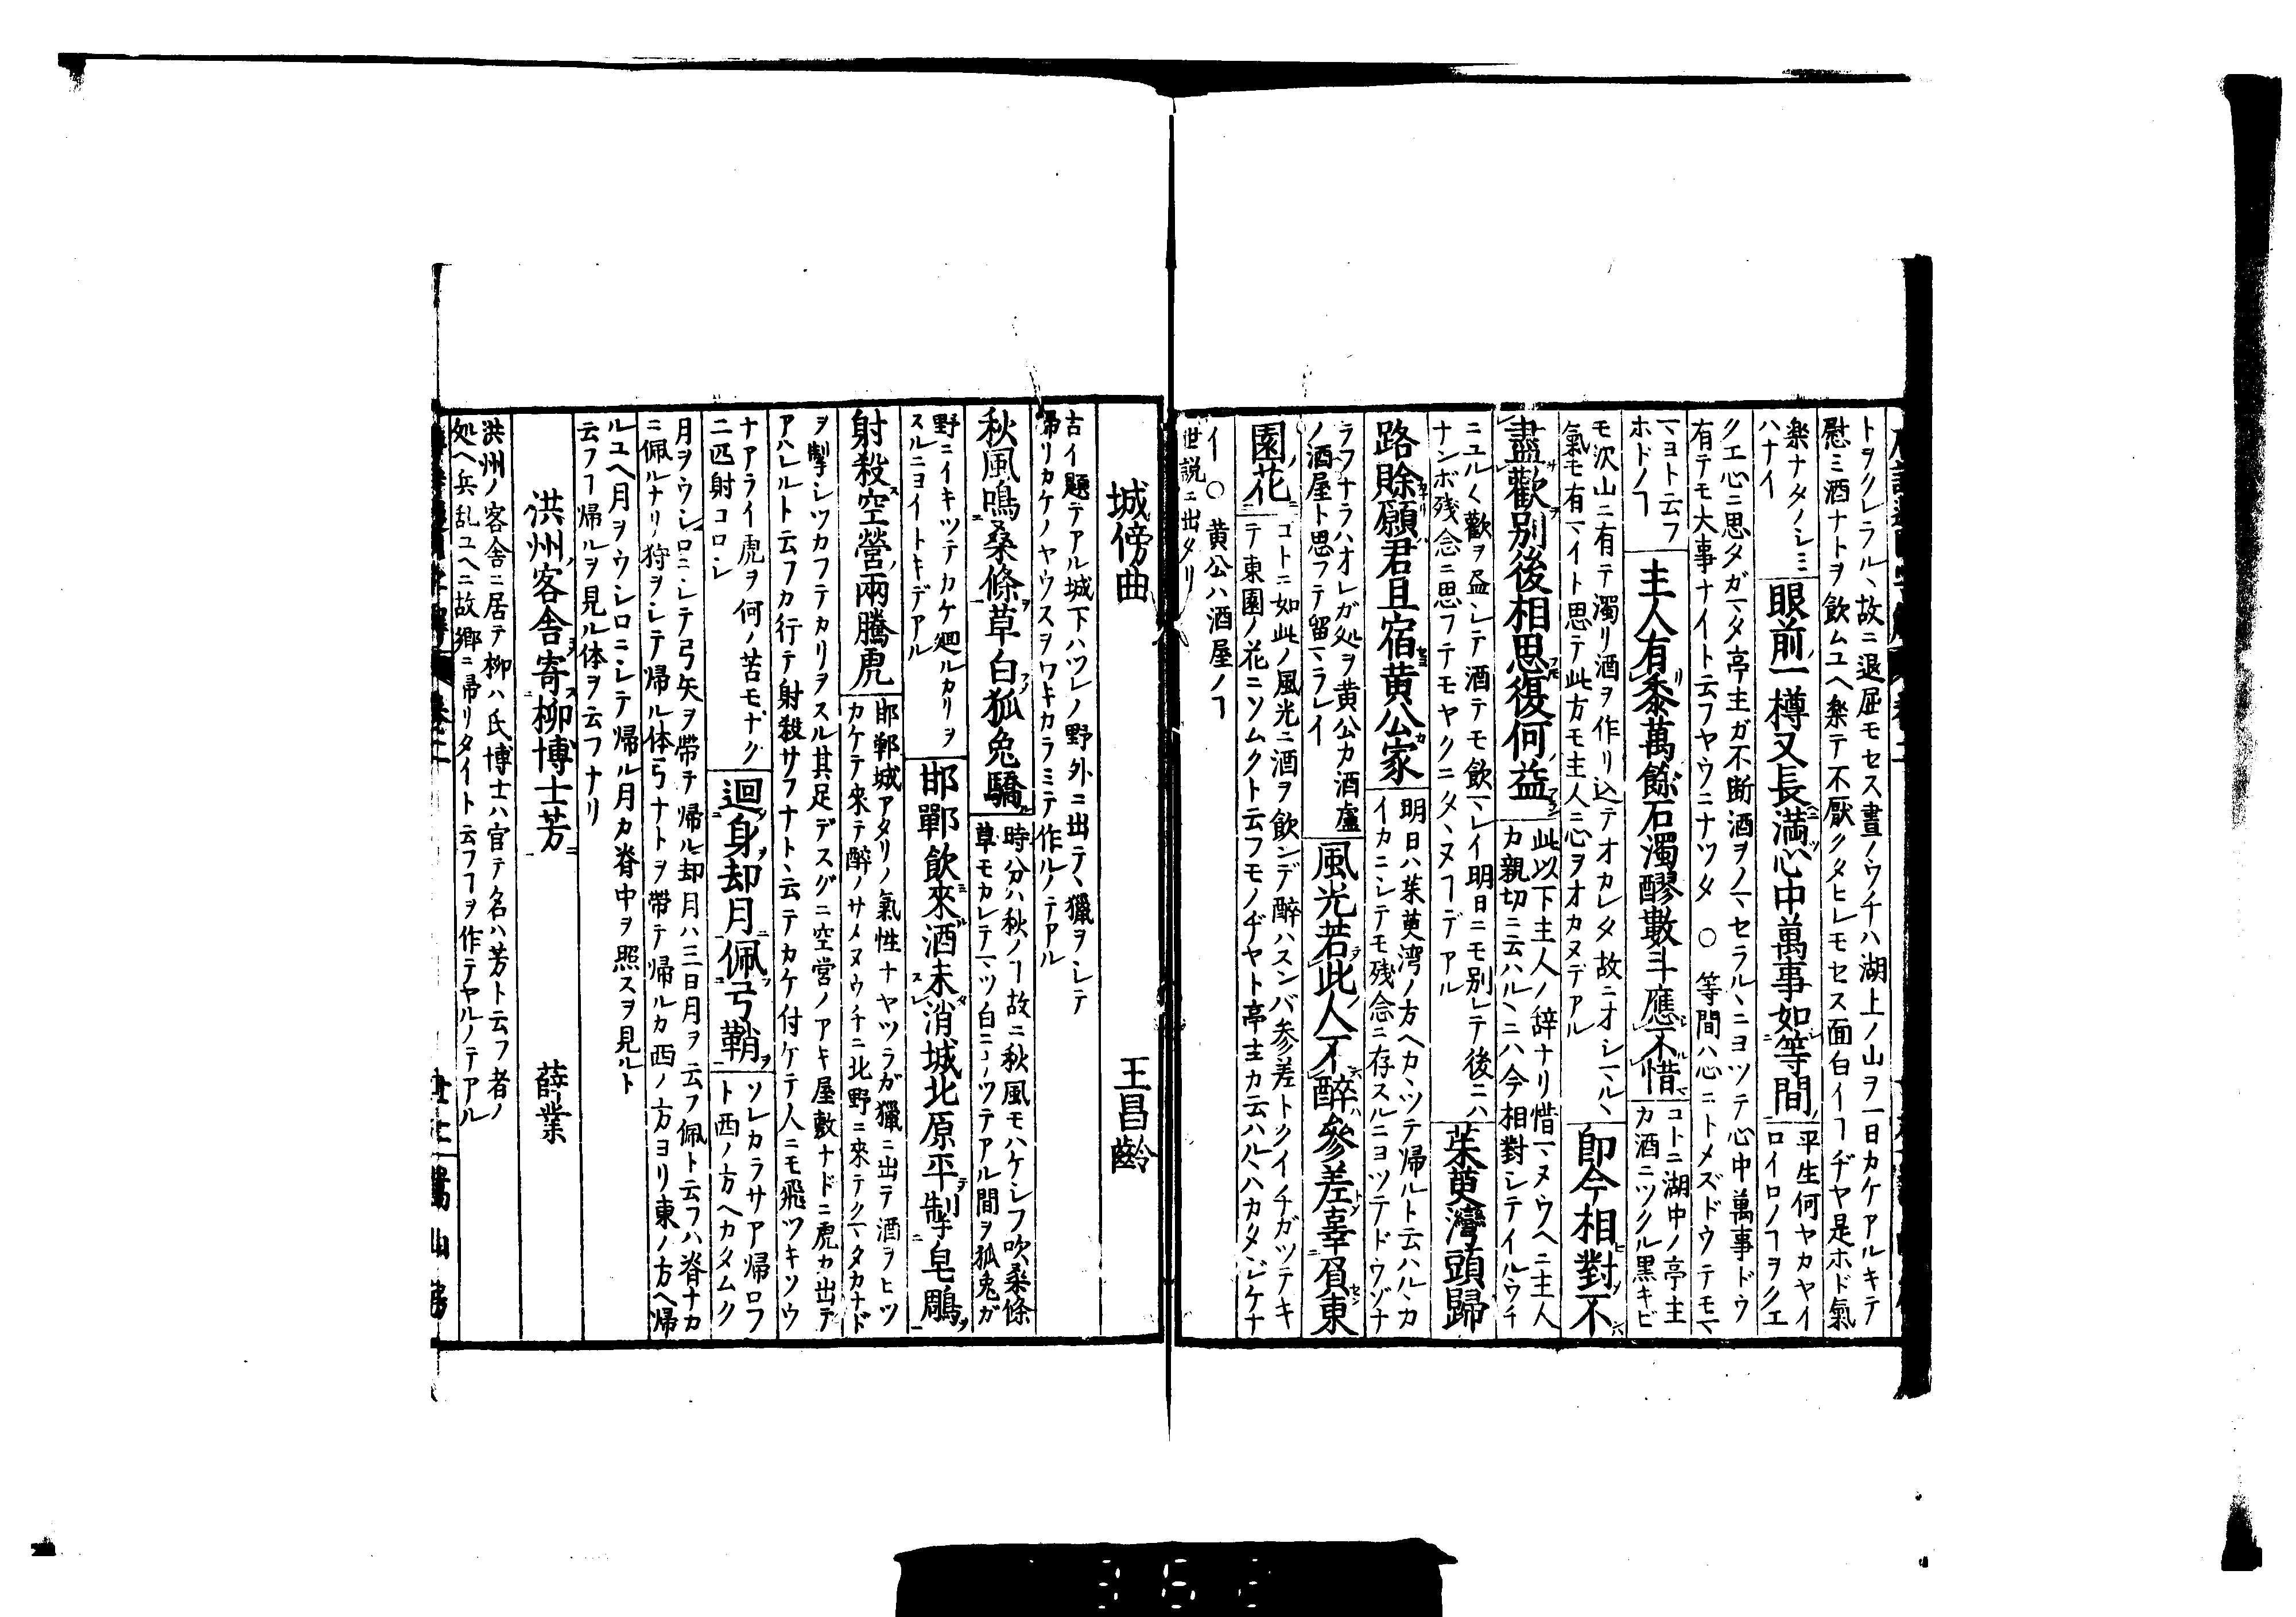 トヲクレラル、故ニ退屈モセス晝ノウチハ湖上ノ山ヲ一日カケアルキテ
慰ミ酒ナトヲ飲ムユヘ楽テ不厭クタヒレモセス面白イヿヂヤ是ホド氣
楽ナタノシミ
ハナイ
眼前一樽又長満心中萬事如等間
平生何ヤカヤイ
ロイロノヿヲクエ
クエ心ニ思タガマタ亭主ガ不断酒ヲノマセラル、ニヨツテ心中萬事ドウ
有テモ大事ナイト云フヤウニナツタ ○ 等間ハ心ニトメズドウテモマ
マヨト云フ
ホドノヿ
主人有黍萬餘石濁醪數斗應不惜
コトニ湖中ノ亭主
カ酒ニツクル黒キビ
モ沢山ニ有テ濁リ酒ヲ作リ込テオカレタ故ニオシマル、
氣モ有マイト思テ此方モ主人ニ心ヲオカヌデアル
即今相對不
盡歡別後相思復何益
此以下主人ノ辞ナリ惜マヌウヘニ主人
カ親切ニ云ハル、ニハ今相對シテイルウチ
ニユルく歡ヲ盡シテ酒テモ飲マレイ明日ニモ別レテ後ニハ
ナンボ残念ニ思フテモヤクニタ、ヌヿデアル
茱萸灣頭歸
路賖願君且宿黄公家
明日ハ茱萸湾ノ方ヘカ、ツテ帰ルト云ハル、カ
イカニシテモ残念ニ存スルニヨツテドウゾナ
ラフナラハオレガ処ヲ黄公カ酒盧
ノ酒屋ト思フテ留マラレイ
風光若此人不醉參差辜負東
園花
コトニ如此ノ風光ニ酒ヲ飲ンデ醉ハスンバ参差トクイチガツテキ
テ東園ノ花ニソムクト云フモノヂヤト亭主カ云ハル、ハカタジケナ
イ ○ 黄公ハ酒屋ノヿ
世説ニ出タリ
城傍曲 王昌齡
古イ題テアル城下ハツレノ野外ニ出テ、獵ヲシテ
帰リカケノヤウスヲワキカラミテ作ルノテアル
秋風鳴桑條草白狐兔驕
時分ハ秋ノヿ故ニ秋風モハケシフ吹桑條
草モカレテマツ白ニナツテアル間ヲ狐兔ガ
野ニイキツテカケ廻ルカリヲ
スルニヨイトキデアル
邯鄲飲來酒未消城北原平掣皂鵰
射殺空營兩騰虎
邯鄲城アタリノ氣性ナヤツラガ獵ニ出テ酒ヲヒツ
カケテ來テ醉ノサメヌウチニ北野ニ來テクマタカナド
ヲ掣シツカフテカリヲスル其足デスグニ空営ノアキ屋敷ナドニ虎カ出デ
アハレルト云フカ行テ射殺サフナト、云テカケ付ケテ人ニモ飛ツキソウ
ナアライ虎ヲ何ノ苦モナク
二匹射コロシ
迴身却月佩弓鞘
ソレカラサア帰ロフ
ト西ノ方ヘカタムク
月ヲウシロニシテ弓矢ヲ帶テ帰ル却月ハ三日月ヲ云フ佩ト云フハ脊ナカ
ニ佩ルナリ狩ヲシテ帰ル体弓ナトヲ帶テ帰ルカ西ノ方ヨリ東ノ方ヘ帰
ルユヘ月ヲウシロニシテ帰ル月カ脊中ヲ照スヲ見ルト
云フヿ帰ルヲ見ル体ヲ云フナリ
洪州客舎寄柳博士芳 薛業
洪州ノ客舎ニ居テ柳ハ氏博士ハ官テ名ハ芳ト云フ者ノ
処ヘ兵乱ユヘニ故郷ニ帰リタイト云フヿヲ作テヤルノテアル